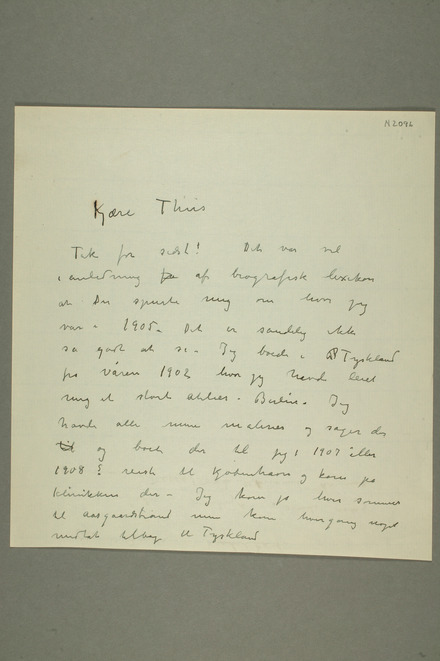 N2096
Kjære Thiis
Tak for sidst! Det var vel
i anledning af biografisk lexikon
at Du spurte mig om hvor jeg
var i 1905. Det er sandelig ikke
så godt at si – Jeg bodde i Tyskland
fra våren 1902 hvor jeg havde leiet
mig et stort atelier i Berlin. Jeg
havde alle mine malerier og sager der
og bodde der til jeg i 1907 eller
1908 reiste til Kjøbenhavn og kom på
klinikken der – Jeg kom jo hver sommer
til Aasgaardstrand men kom hvergang
tilbage til Tyskland